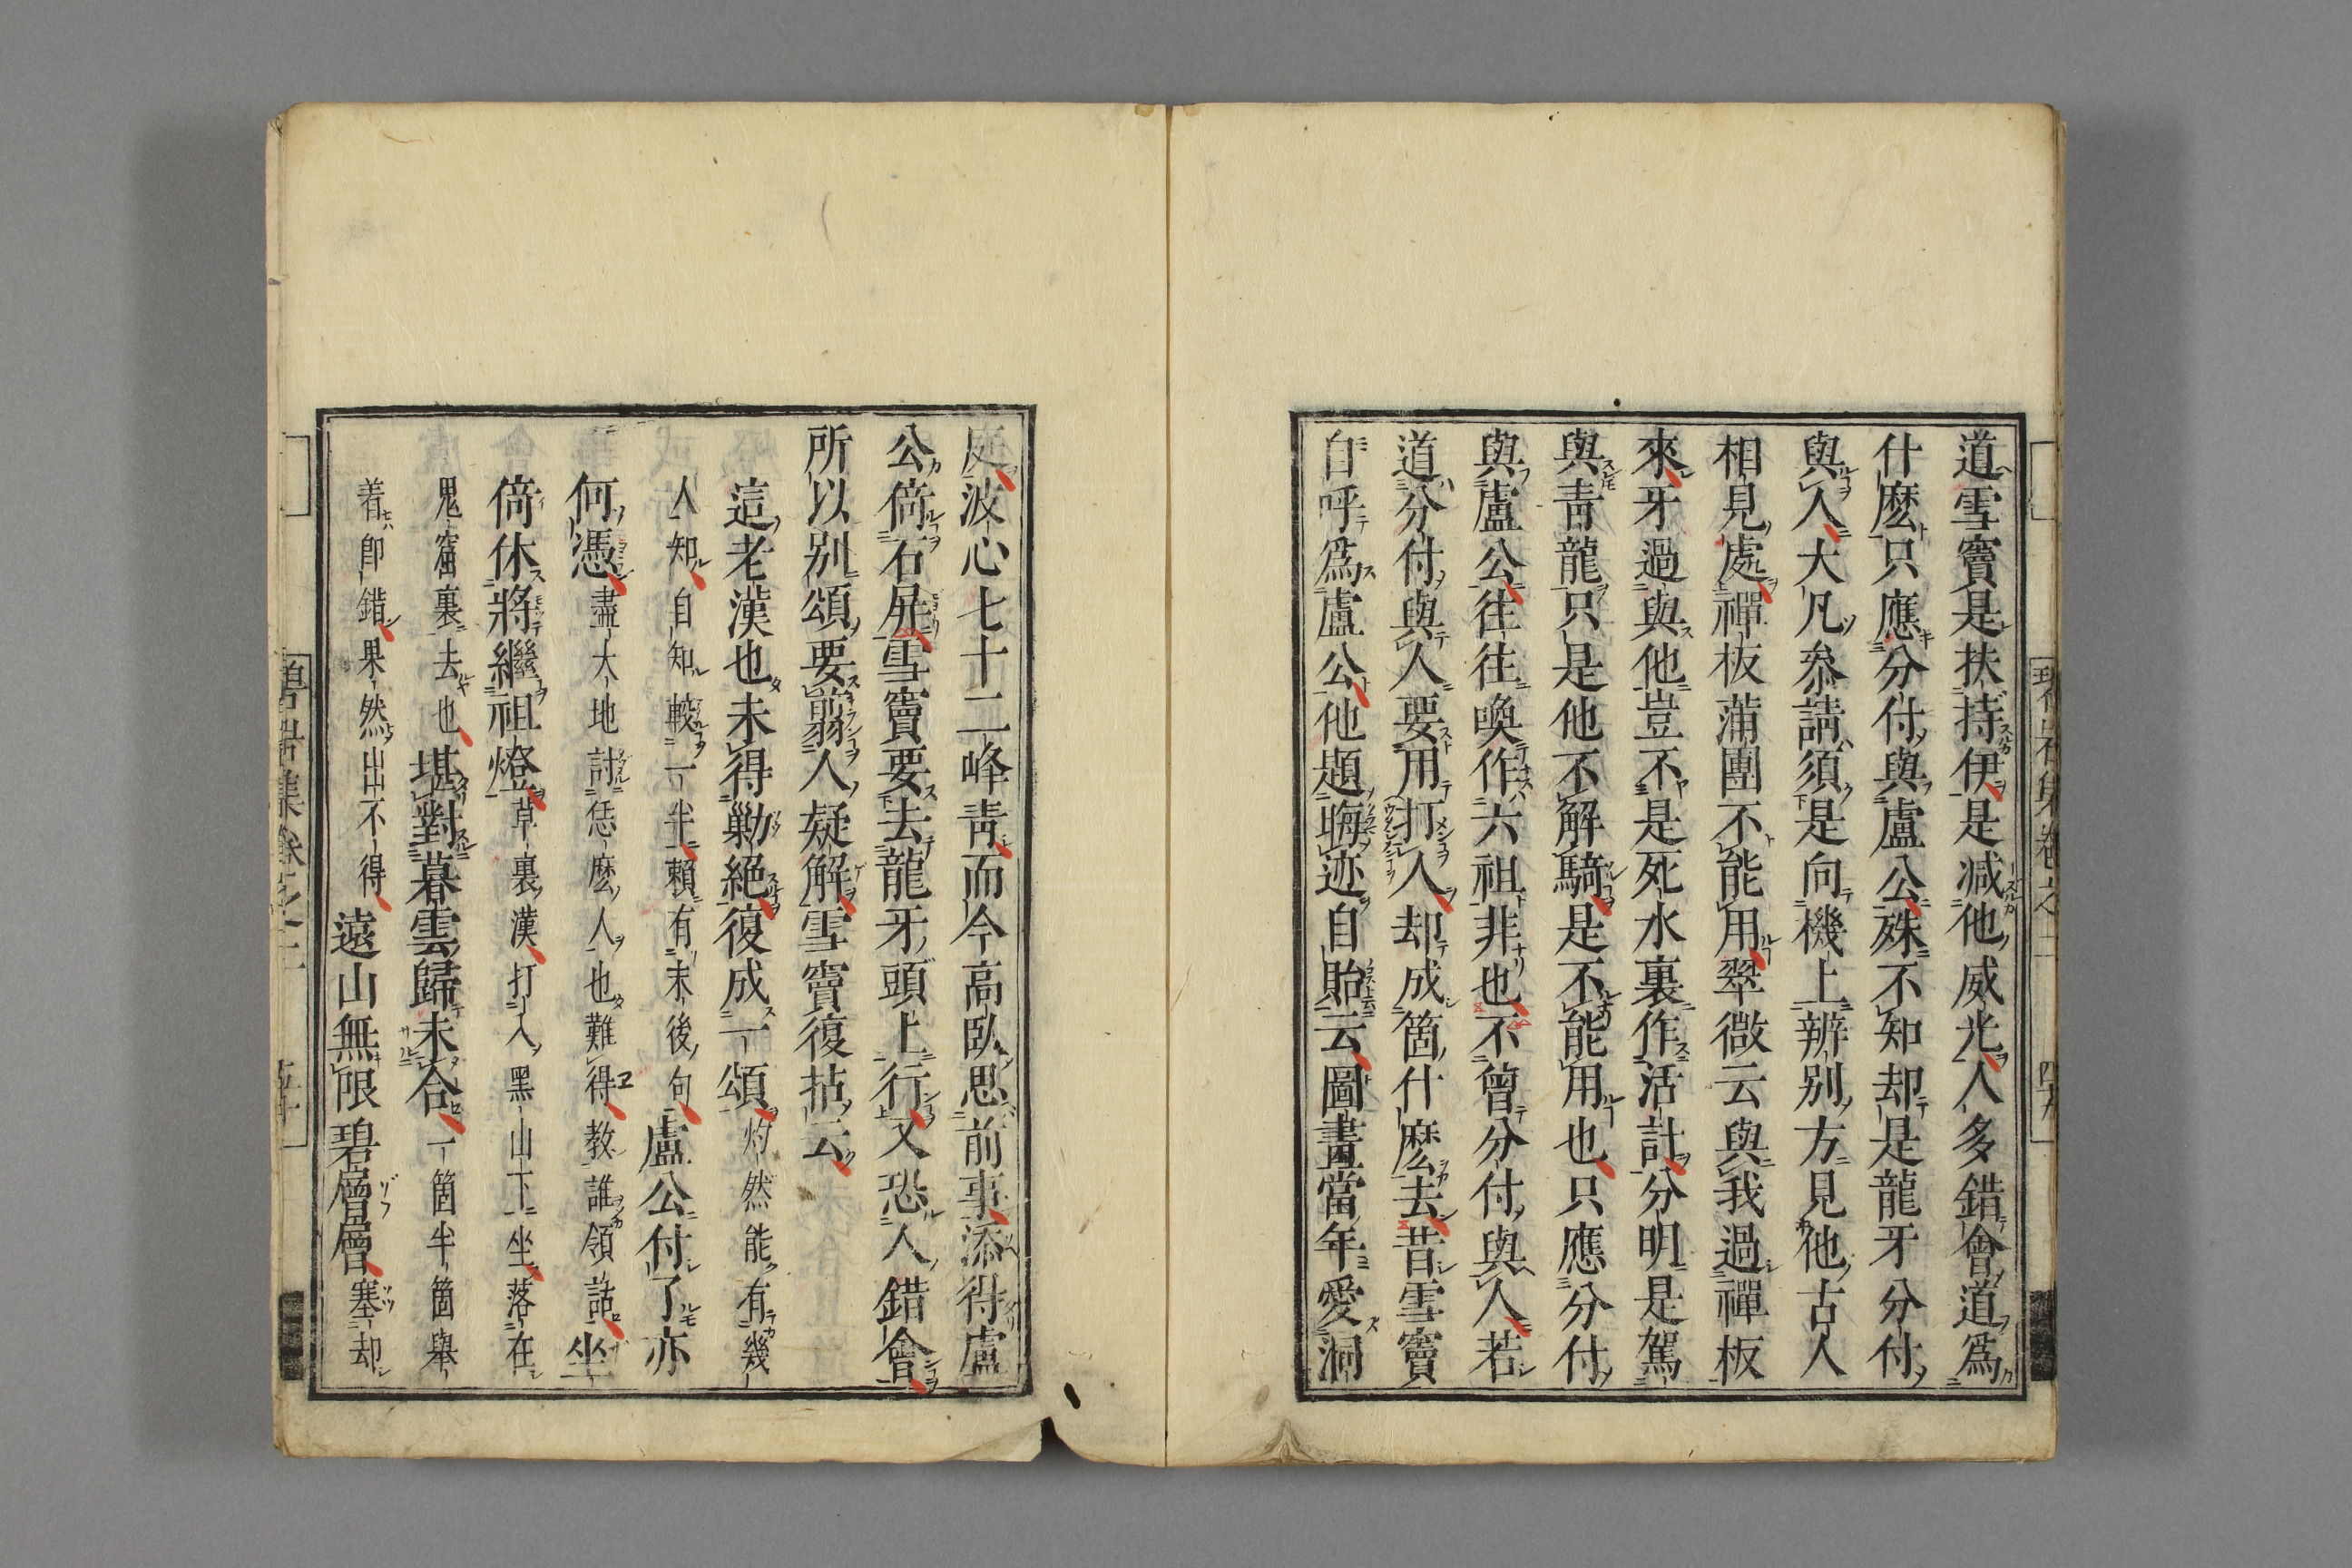 道雪竇是扶持伊是減他威光人多錯會道爲
什麽只應分付與盧公殊不知却是龍牙分付
與人大凡參請須是向機上辨別方見他古人
相見處禪板蒲團不能用翠微云與我過禪板
來牙過與他豈不是死水裏作活計分明是駕
與青龍只是他不解騎是不能用也只應分付
與盧公往往喚作六祖非也不曾分付與人若
道分付與人要用打人却成箇什麽去昔雪竇
自呼爲盧公他題晦迹自貽云圖畫當年愛洞
庭波心七十二峰青而今高臥思前事添得盧
公倚石屏雪竇要去龍牙頭上行又恐人錯會
所以別頌要剪人疑解雪竇復拈云
這老漢也未得勦絕復成一頌灼然能有幾
人知自知較一半賴有末後句盧公付了亦
何憑盡大地討恁麽人也難得教誰領話坐
倚休將繼祖燈草裏漢打入黑山下坐落在
鬼窟裏去也堪對暮雲歸未合一箇半箇舉
着卽錯果然出不得遠山無限碧層層塞却